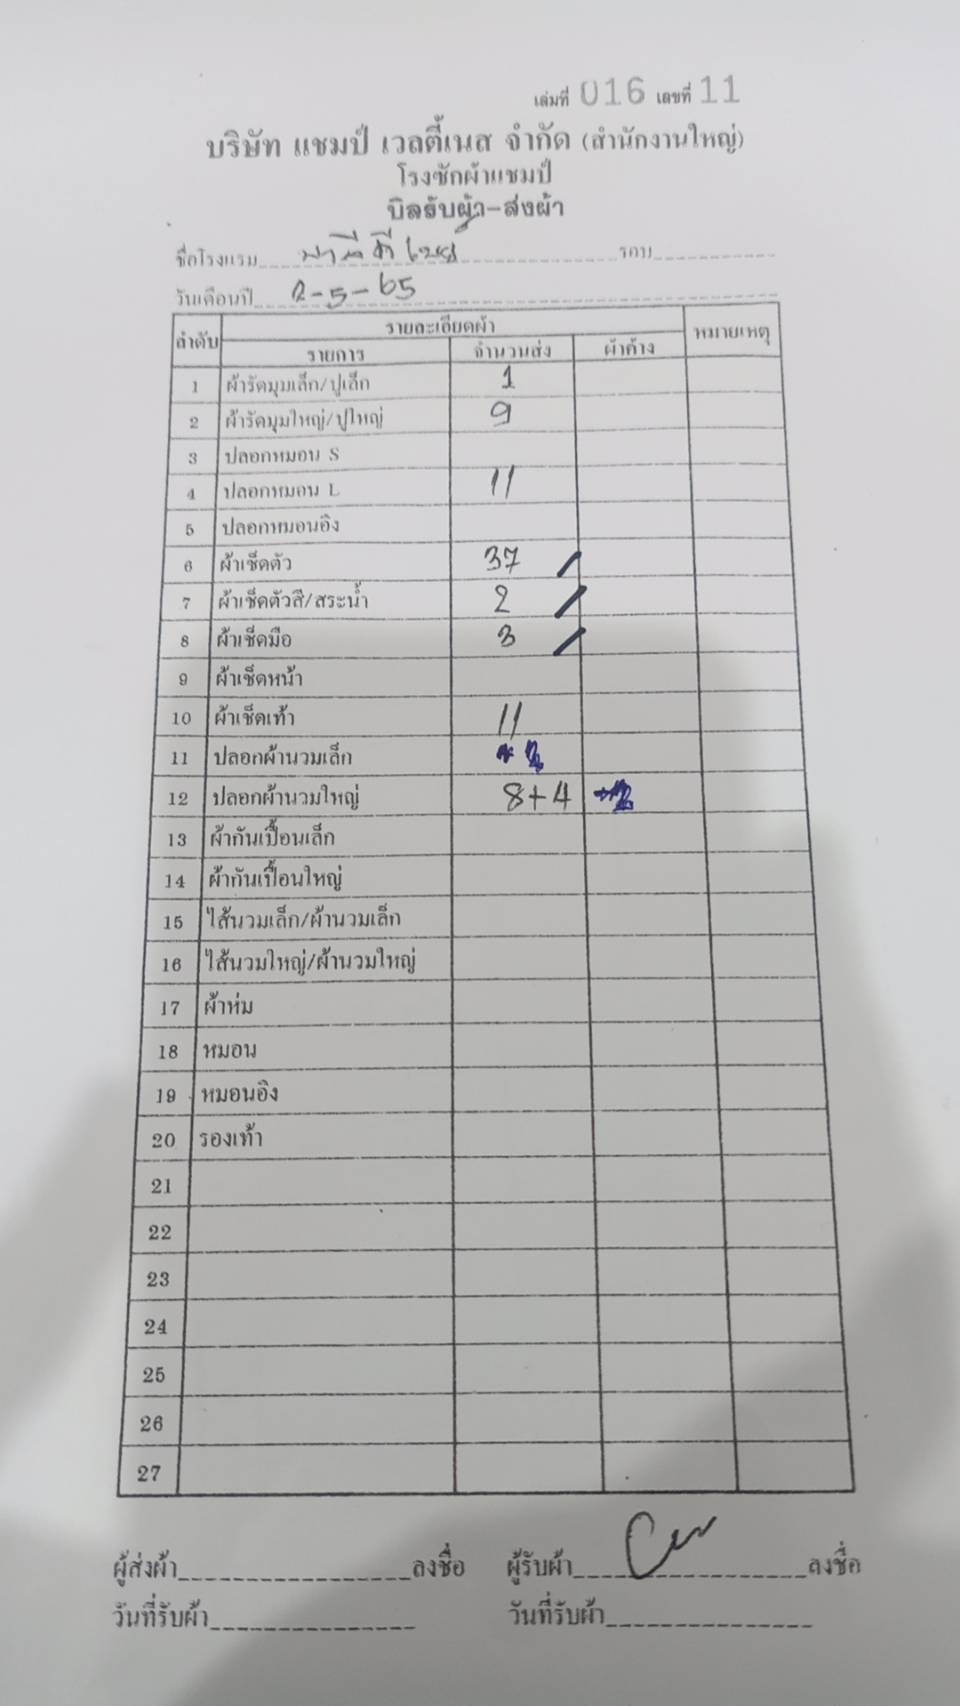 เล่มที่ 016 เลขที่ 11
บริษัท แชมป์ เวลตี้เนส จำกัด (สำนักงานใหญ่)
โรงซักผ้าแชมป์
บิลรับผ้า-ส่งผ้า
ชื่อโรงแรม รอบ
วันเดือนปี 2-5-65
ลำดับ รายละเอียดผ้า หมายเหตุ
รายการ จำนวนส่ง ผ้าค้าง
1 ผ้ารัดมุมเล็ก/ปูเล็ก 1
2 ผ้ารัดมุมใหญ่/ปูใหญ่ 9
3 ปลอกหมอน S
4 ปลอกหมอน L 11
5 ปลอกหมอนอิง
6 ผ้าเช็ดตัว 37 /
7 ผ้าเช็ดตัวสี/สระน้ำ 2 /
8 ผ้าเช็ดมือ 3 /
9 ผ้าเช็ดหน้า
10 ผ้าเช็ดเท้า 11
11 ปลอกผ้านวมเล็ก
12 ปลอกผ้านวมใหญ่ 8+4
13 ผ้ากันเปื้อนเล็ก
14 ผ้ากันเปื้อนใหญ่
15 ไส้นวมเล็ก/ผ้านวมเล็ก
16 ไส้นวมใหญ่/ผ้านวมใหญ่
17 ผ้าห่ม
18 หมอน
19 หมอนอิง
20 รองเท้า
21
22
23
24
25
26
27
ผู้ส่งผ้า ลงชื่อ ผู้รับผ้า ลงชื่อ
วันที่รับผ้า วันที่รับผ้า